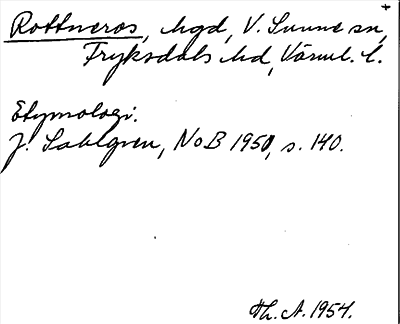 Rottneros, hgd, V. Sunne sn,
Fryksdals hd, Värml. l.
Etymologi.
J. Sahlgren, NoB 1950, s. 140.
Th. A. 1954.